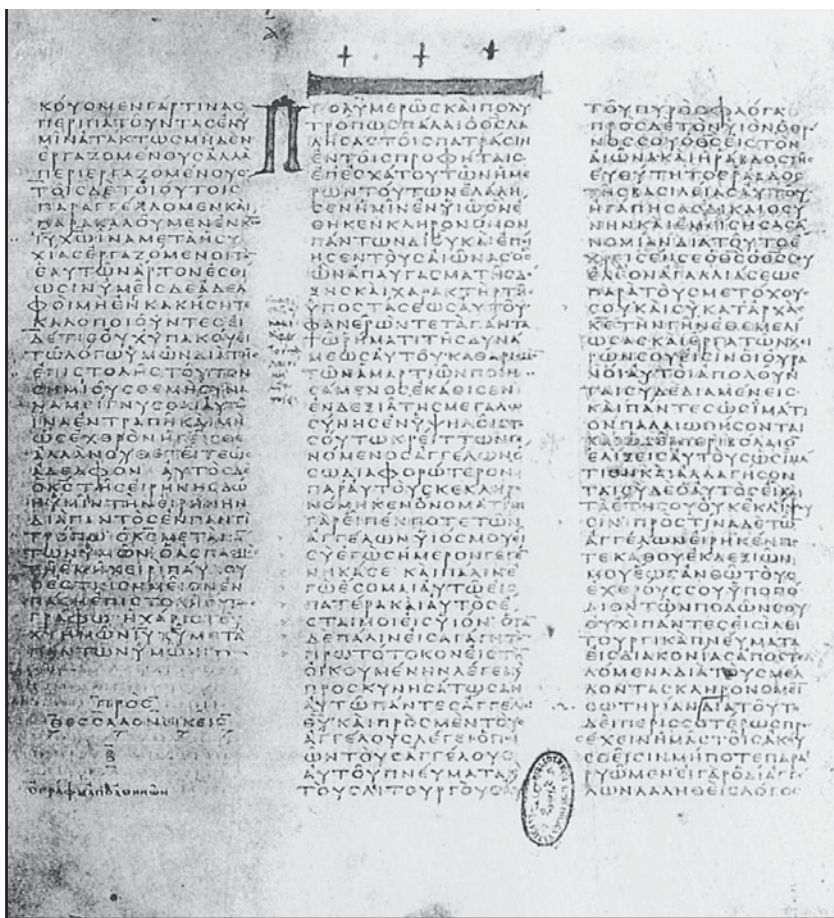 ΚΟΥΟΜΕΝΓΑΡΤΙΝΑϹ
ΠΕΡΙΠΑΤΟΥΝΤΑϹΕΝΥ
ΜΙΝΑΤΑΚΤΩϹΜΗΔΕΝ
ΕΡΓΑΖΟΜΕΝΟΥϹΑΛΛΑ
ΠΕΡΙΕΡΓΑΖΟΜΕΝΟΥϹ
ΤΟΙϹΔΕΤΟΙΟΥΤΟΙϹ
ΠΑΡΑΓΓΕΛΛΟΜΕΝΚΑΙ
ΠΑΡΑΚΑΛΟΥΜΕΝΕΝΚΩ
ΙΥΧΩΙΝΑΜΕΤΑΗϹΥ
ΧΙΑϹΕΡΓΑΖΟΜΕΝΟΙΤΟ
ΕΑΥΤΩΝΑΡΤΟΝΕϹΘΙ
ΩϹΙΝΥΜΕΙϹΔΕΑΔΕΛ
ΦΟΙΜΗΕΝΚΑΚΗϹΗΤΕ
ΚΑΛΟΠΟΙΟΥΝΤΕϹΕΙ
ΔΕΤΙϹΟΥΧΥΠΑΚΟΥΕΙ
ΤΩΛΟΓΩΥΜΩΝΔΙΑΤΗϹ
ΕΠΙϹΤΟΛΗϹΤΟΥΤΟΝ
ϹΗΜΙΟΥϹΘΕΜΗϹΥΝΑ
ΝΑΜΕΙΓΝΥϹΘΑΙΑΥΤΩ
ΙΝΑΕΝΤΡΑΠΗΚΑΙΜΗ
ΩϹΕΧΘΡΟΝΗΓΕΙϹΘΕ
ΑΛΛΑΝΟΥΘΕΤΕΙΤΕΩϹ
ΑΔΕΛΦΟΝ ΑΥΤΟϹΔΕ
ΟΚϹΤΗϹΕΙΡΗΝΗϹΔΩ
ΗΥΜΙΝΤΗΝΕΙΡΗΝΗΝ
ΔΙΑΠΑΝΤΟϹΕΝΠΑΝΤΙ
ΤΡΟΠΩ ΟΚϹΜΕΤΑΠΑΝ
ΤΩΝΥΜΩΝ ΟΑϹΠΑϹΜΟϹ
ΤΗΕΜΗΧΕΙΡΙΠΑΥΛΟΥ
ΟΕϹΤΙΝϹΗΜΕΙΟΝΕΝ
ΠΑϹΗΕΠΙϹΤΟΛΗΟΥΤΩϹ
ΓΡΑΦΩ ΗΧΑΡΙϹΤΟΥ
ΚΥΗΜΩΝΙΥΧΥΜΕΤΑ
ΠΑΝΤΩΝΥΜΩΝ
ΠΡΟϹ
ΘΕϹϹΑΛΟΝΙΚΕΙϹ
Β
ΕΓΡΑΦΗΑΠΟΑΘΗΝΩΝ
ΠΟΛΥΜΕΡΩϹΚΑΙΠΟΛΥ
ΤΡΟΠΩϹΠΑΛΑΙΟΘϹΛΑ
ΛΗϹΑϹΤΟΙϹΠΑΤΡΑϹΙΝ
ΕΝΤΟΙϹΠΡΟΦΗΤΑΙϹ
ΕΠΕϹΧΑΤΟΥΤΩΝΗΜΕ
ΡΩΝΤΟΥΤΩΝΕΛΑΛΗ
ϹΕΝΗΜΙΝΕΝΥΙΩΟΝΕ
ΘΗΚΕΝΚΛΗΡΟΝΟΜΟΝ
ΠΑΝΤΩΝΔΙΟΥΚΑΙΕΠΟΙ
ΗϹΕΝΤΟΥϹΑΙΩΝΑϹΟϹ
ΩΝΑΠΑΥΓΑϹΜΑΤΗϹΔΟ
ΞΗϹΚΑΙΧΑΡΑΚΤΗΡΤΗϹ
ΥΠΟϹΤΑϹΕΩϹΑΥΤΟΥ
ΦΑΝΕΡΩΝΤΕΤΑΠΑΝΤΑ
ΤΩΡΗΜΑΤΙΤΗϹΔΥΝΑ
ΜΕΩϹΑΥΤΟΥΚΑΘΑΡΙϹΜΟΝ
ΤΩΝΑΜΑΡΤΙΩΝΠΟΙΗ
ϹΑΜΕΝΟϹΕΚΑΘΙϹΕΝ
ΕΝΔΕΞΙΑΤΗϹΜΕΓΑΛΩ
ϹΥΝΗϹΕΝΥΨΗΛΟΙϹΤΟ
ϹΟΥΤΩΚΡΕΙΤΤΩΝΓΕ
ΝΟΜΕΝΟϹΑΓΓΕΛΩΝΟ
ϹΩΔΙΑΦΟΡΩΤΕΡΟΝ
ΠΑΡΑΥΤΟΥϹΚΕΚΛΗΡΟ
ΝΟΜΗΚΕΝΟΝΟΜΑΤΙΝΙ
ΓΑΡΕΙΠΕΝΠΟΤΕΤΩΝ
ΑΓΓΕΛΩΝΥΙΟϹΜΟΥΕΙ
ϹΥΕΓΩϹΗΜΕΡΟΝΓΕΓΕ
ΝΗΚΑϹΕ ΚΑΙΠΑΛΙΝΕ
ΓΩΕϹΟΜΑΙΑΥΤΩΕΙϹ
ΠΑΤΕΡΑΚΑΙΑΥΤΟϹΕ
ϹΤΑΙΜΟΙΕΙϹΥΙΟΝ ΟΤΑ
ΔΕΠΑΛΙΝΕΙϹΑΓΑΓΗΤΟ
ΠΡΩΤΟΤΟΚΟΝΕΙϹΤΗ
ΟΙΚΟΥΜΕΝΗΝΛΕΓΕΙΚΑΙ
ΠΡΟϹΚΥΝΗϹΑΤΩϹΑΝ
ΑΥΤΩΠΑΝΤΕϹΑΓΓΕΛΟΙ
ΘΥΚΑΙΠΡΟϹΜΕΝΤΟΥϹ
ΑΓΓΕΛΟΥϹΛΕΓΕΙΟΠΟΙ
ΩΝΤΟΥϹΑΓΓΕΛΟΥϹ
ΑΥΤΟΥΠΝΕΥΜΑΤΑΚΑΙ
ΤΟΥϹΛΙΤΟΥΡΓΟΥϹΑΥ
ΤΟΥΠΥΡΟϹΦΛΟΓΑ
ΠΡΟϹΔΕΤΟΝΥΙΟΝΟΘΡΟ
ΝΟϹϹΟΥΟΘϹΕΙϹΤΟΝ
ΑΙΩΝΑΚΑΙΗΡΑΒΔΟϹΤΗϹ
ΕΥΘΥΤΗΤΟϹΡΑΒΔΟϹ
ΤΗϹΒΑϹΙΛΕΙΑϹΑΥΤΟΥ
ΗΓΑΠΗϹΑϹΔΙΚΑΙΟϹΥ
ΝΗΝΚΑΙΕΜΙϹΗϹΑϹΑ
ΝΟΜΙΑΝΔΙΑΤΟΥΤΟΕ
ΧΡΕΙϹΕΝϹΕΟΘϹΟΘϹϹΟΥ
ΕΛΕΟΝΑΓΑΛΛΙΑϹΕΩϹ
ΠΑΡΑΤΟΥϹΜΕΤΟΧΟΥϹ
ϹΟΥΚΑΙϹΥΚΑΤΑΡΧΑϹ
ΚΕΤΗΝΓΗΝΕΘΕΜΕΛΙ
ΩϹΑϹΚΑΙΕΡΓΑΤΩΝΧΕΙ
ΡΩΝϹΟΥΕΙϹΙΝΟΙΟΥΡΑ
ΝΟΙΑΥΤΟΙΑΠΟΛΟΥΝ
ΤΑΙϹΥΔΕΔΙΑΜΕΝΕΙϹ
ΚΑΙΠΑΝΤΕϹΩϹΙΜΑΤΙ
ΟΝΠΑΛΑΙΩΘΗϹΟΝΤΑΙ
ΚΑΙΩϹΕΙΠΕΡΙΒΟΛΑΙΟ
ΕΛΙΞΕΙϹΑΥΤΟΥϹΩϹΙΜΑ
ΤΙΟΝΚΑΙΑΛΛΑΓΗϹΟΝ
ΤΑΙϹΥΔΕΟΑΥΤΟϹΕΙΚΑΙ
ΤΑΕΤΗϹΟΥΟΥΚΕΚΛΙΨΟΥ
ϹΙΝ ΠΡΟϹΤΙΝΑΔΕΤΩ
ΑΓΓΕΛΩΝΕΙΡΗΚΕΝΠΟ
ΤΕΚΑΘΟΥΕΚΔΕΞΙΩΝ
ΜΟΥΕΩϹΑΝΘΩΤΟΥϹ
ΕΧΘΡΟΥϹϹΟΥΥΠΟΠΟ
ΔΙΟΝΤΩΝΠΟΔΩΝϹΟΥ
ΟΥΧΙΠΑΝΤΕϹΕΙϹΙΛΕΙ
ΤΟΥΡΓΙΚΑΠΝΕΥΜΑΤΑ
ΕΙϹΔΙΑΚΟΝΙΑϹΑΠΟϹΤΕΛ
ΛΟΜΕΝΑΔΙΑΤΟΥϹΜΕΛ
ΛΟΝΤΑϹΚΛΗΡΟΝΟΜΕΙ
ϹΩΤΗΡΙΑΝΔΙΑΤΟΥΤΟ
ΔΕΙΠΕΡΙϹϹΟΤΕΡΩϹΠΡΟ
ϹΕΧΕΙΝΗΜΑϹΤΟΙϹΑΚΟΥ
ϹΘΕΙϹΙΝΜΗΠΟΤΕΠΑΡΑ
ΡΥΩΜΕΝΕΙΓΑΡΟΔΙΑΓΓΕ
ΛΩΝΛΑΛΗΘΕΙϹΛΟΓΟϹ